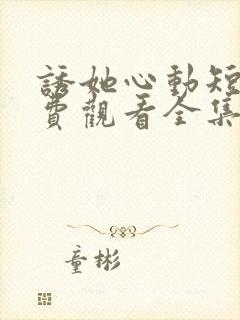 誘她心動短
費觀看全集
童彬